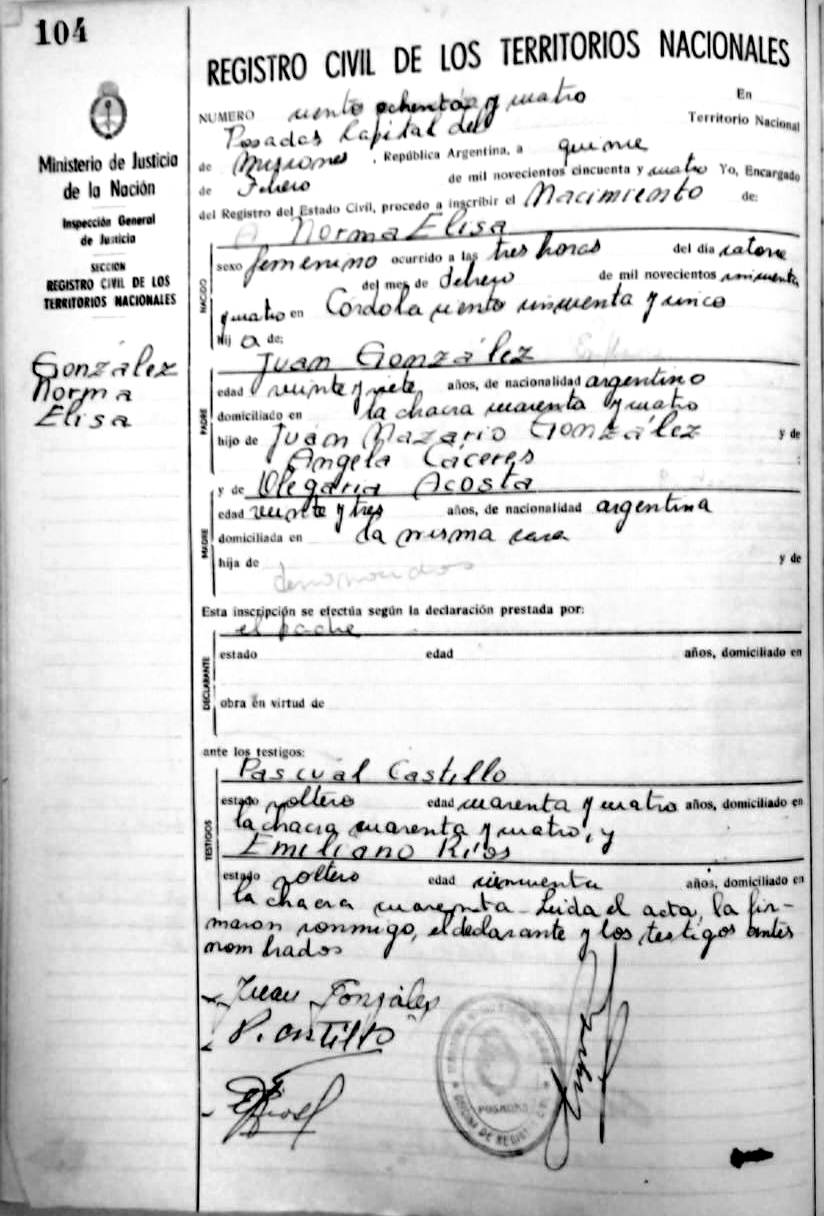 104
REGISTRO CIVIL DE LOS TERRITORIOS NACIONALES
Ministerio de Justicia
de la Nación
Inspección General
de Justicia
SECCION
REGISTRO CIVIL DE LOS
TERRITORIOS NACIONALES
González
Norma
Elisa
NUMERO ciento ochenta y cuatro En
Posadas Capital del Territorio Nacional
de Misiones, República Argentina, a quince
de Febrero de mil novecientos cincuenta y cuatro Yo, Encargado
del Registro del Estado Civil, procedo a inscribir el Nacimiento de:
Norma Elisa
NACIDO
sexo femenino ocurrido a las tres horas del día catorce
del mes de febrero de mil novecientos cincuenta
y cuatro en Córdoba ciento cincuenta y cinco
hij a de:
Juan González
PADRE
edad veinte y siete años, de nacionalidad argentino
domiciliado en la chacra cuarenta y cuatro
hijo de Juan Nazario González y de
Angela Cáceres :
y de Olegaria Acosta
MADRE
edad veinte y tres años, de nacionalidad argentina
domiciliada en la misma casa
hija de y de
Esta inscripción se efectúa según la declaración prestada por:
el padre
DECLARANTE
estado edad años, domiciliado en
obra en virtud de
ante los testigos:
Pascual Castillo
TESTIGOS
estado soltero edad cuarenta y cuatro años, domiciliado en
la chacra cuarenta y cuatro, y
Emiliano Ríos
estado soltero edad cincuenta años, domiciliado en
la chacra cuarenta. Leida el acta, la fir-
maron conmigo, el declarante y los testigos antes
nombrados
Juan González
P. Castillo
E Rios
OFICINA DE REGISTRO CIVIL
POSADAS